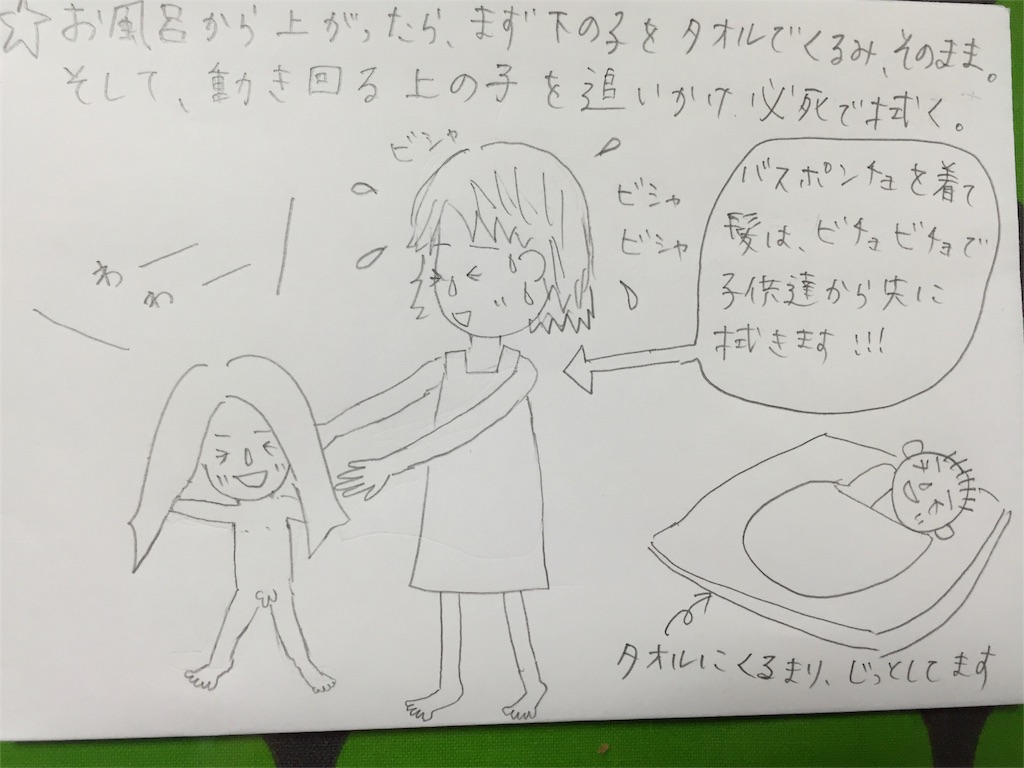 ☆お風呂から上がったら、まず下の子をタオルでくるみ、そのまま。
そして、動き回る上の子を追いかけ必死で拭く。
ビシャ
ビシャ
ビシャ
バスポンチョを着て
髪は、ビチョビチョで
子供達から先に
拭きます!!!
わー
わー
タオルにくるまり、じっとしてます